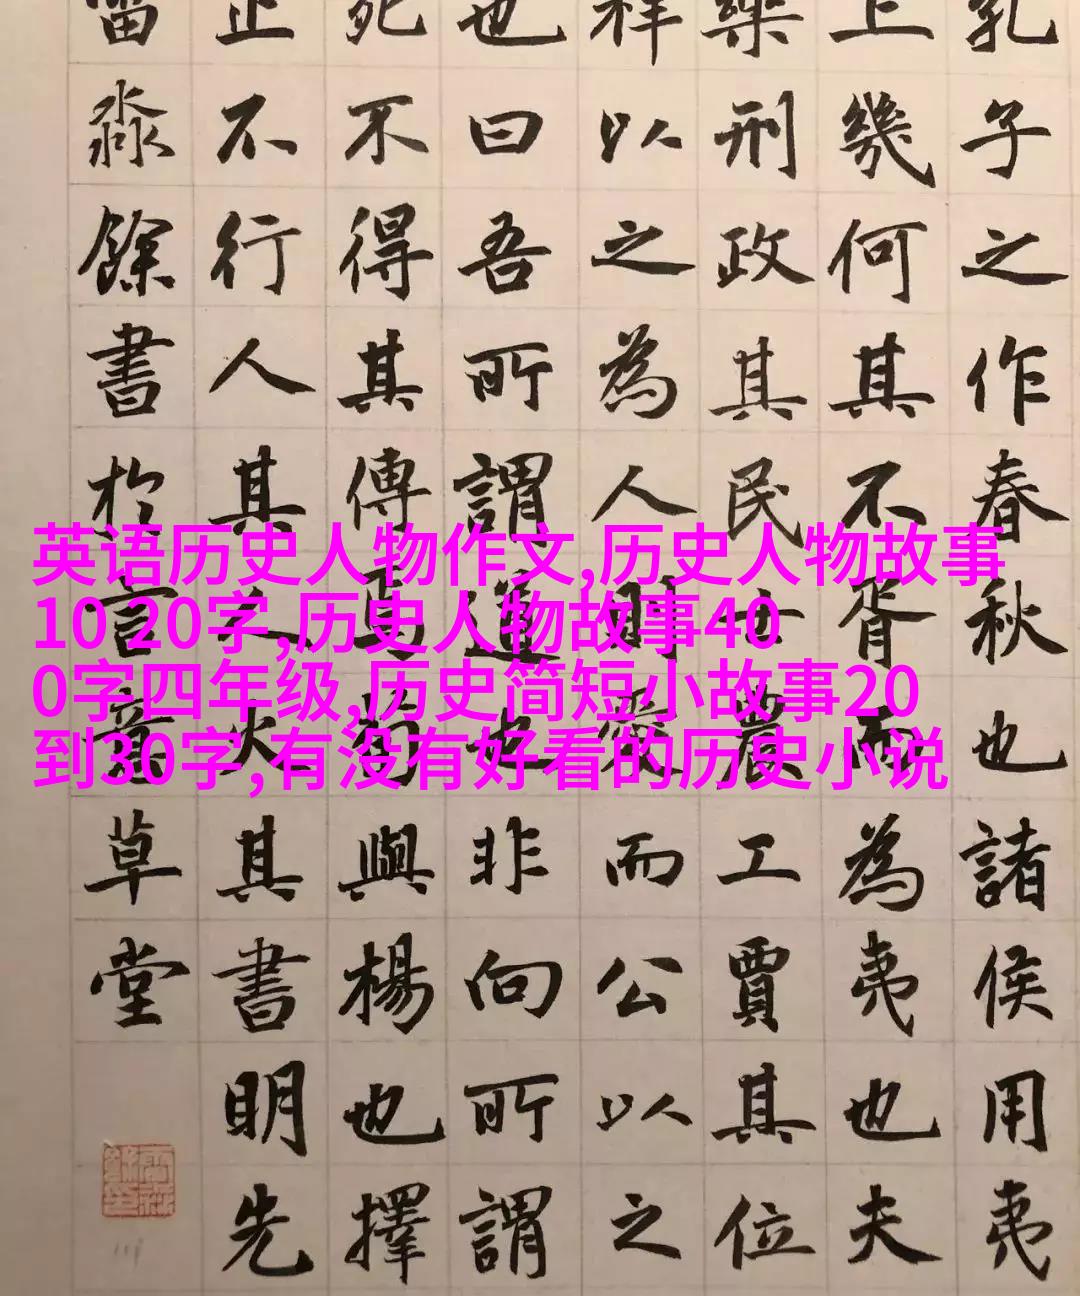 孔子之作春秋也諸侯用夷
上幾何其不胥而為夷也夫
樂刑政其民士農工賈其位
祥以之為人則愛而公以之
也曰吾所謂道也非向所謂
死不得其傳焉荀與楊也擇
止不行人其人火其書明先
淼餘書於言意草堂
英语历史人物作文,历史人物故事
10 20字,历史人物故事40
0字四年级,历史简短小故事20
到30字,有没有好看的历史小说